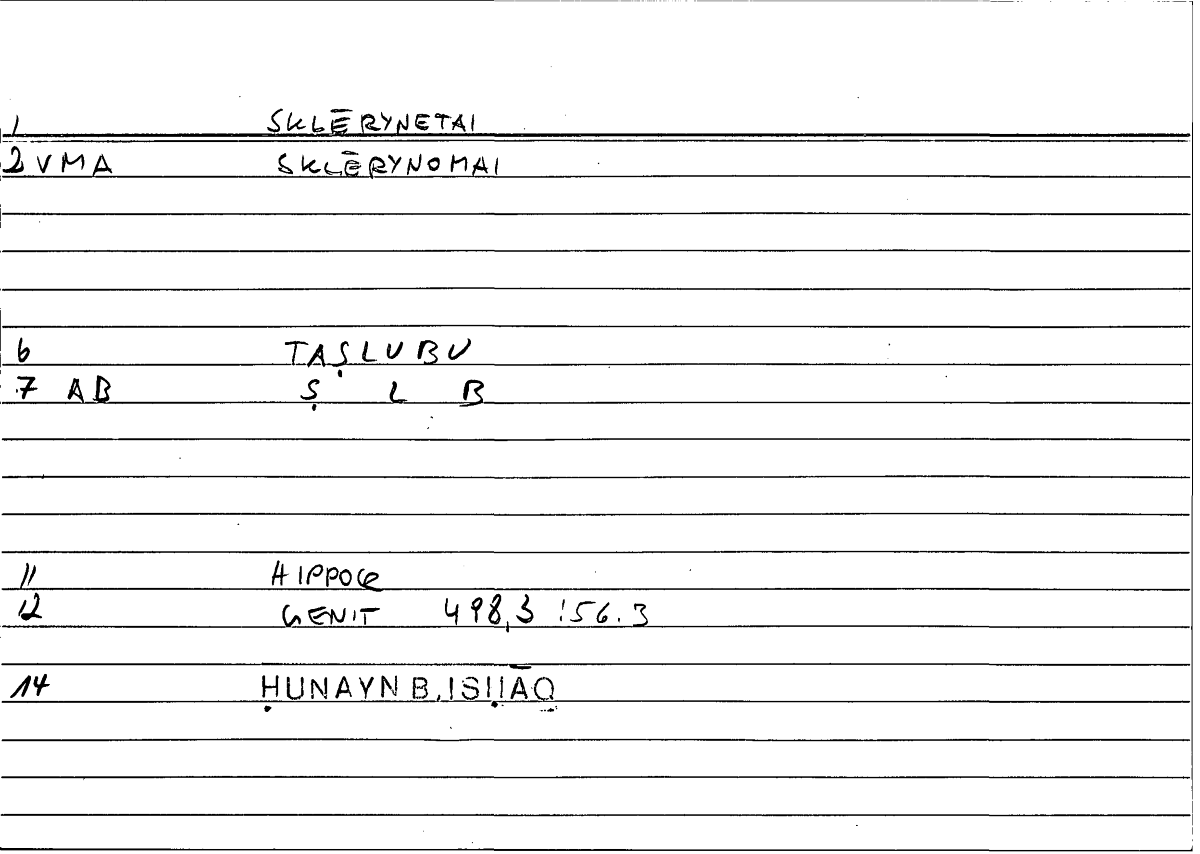 1 SKLĒRYNETAI
2 VMA SKLĒRYNOMAI
6 TAṢLUBU
7 AB Ṣ L B
11 HIPPOCR
12 GENIT 498,3 : 56.3
14 ḤUNAYN B. ISḤĀQ